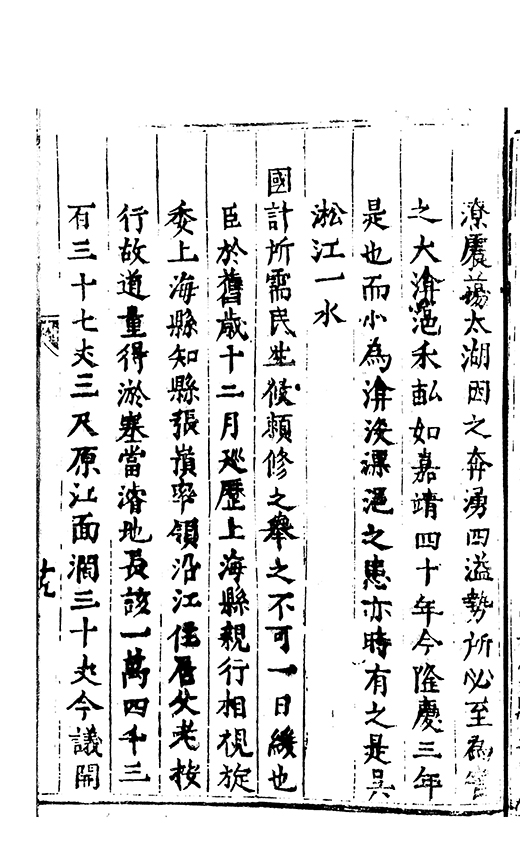 潦震蕩太湖因之奔湧四溢勢所必至為
之大淪浥禾畝如嘉靖四十年今隆慶三年
是也而小為淪没漂浥之患亦時有之是吴
淞江一水
國計所需民生攸頼修之舉之不可一日緩也
臣於舊歲十二月廵歷上海縣親行相視旋
委上海縣知縣張嶺率領沿江住居父老按
行故道量得淤塞當濬地長該一萬四千三
百三十七丈三尺原江面濶三十丈今議開